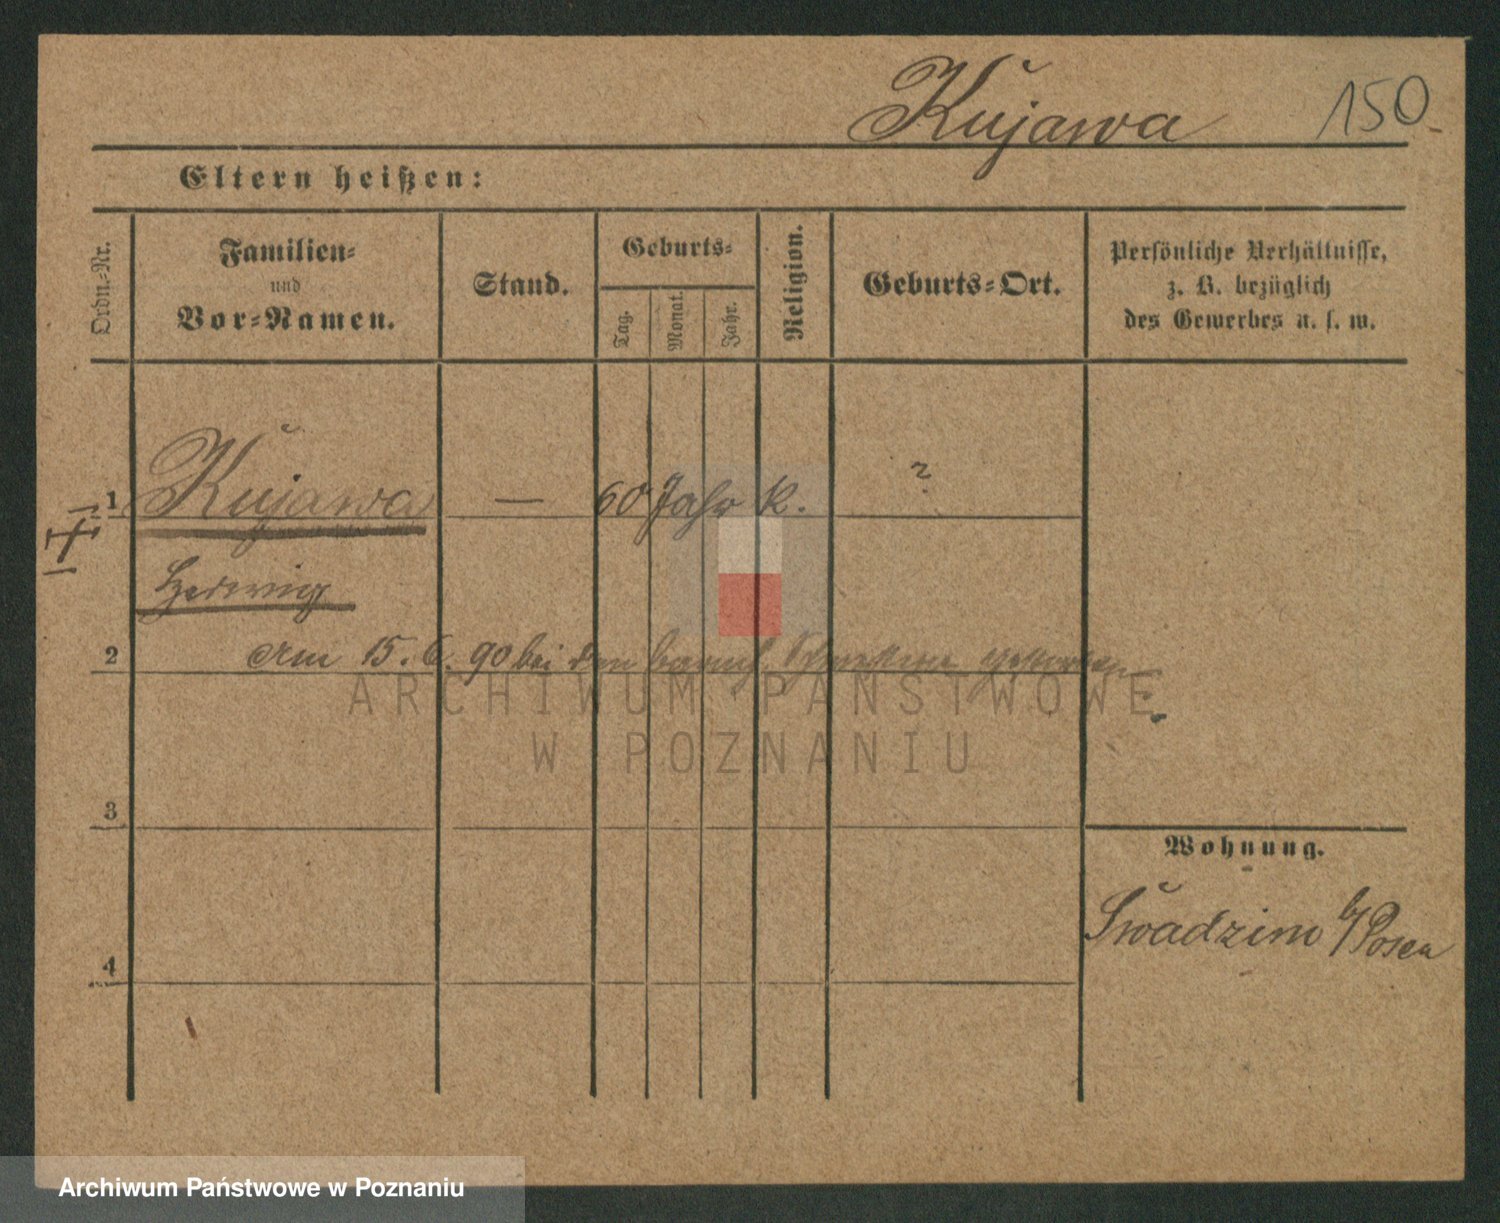 Kujawa 150
Eltern heißen:
Ordn.-Nr.
Familien-
und
Vor-Namen.
Stand.
Geburts-
Tag.
Monat.
Jahr.
Religion.
Geburts-Ort.
Persönliche Verhältnisse,
z. B. bezüglich
des Gewerbes u. s. w.
1 Kujawa — 60 Jahr K. ?
Hedwig
2 Am 15. 6. 90 bei den barmh. Schwestern gestorben
ARCHIWUM PAŃSTWOWE
W POZNANIU
3
Wohnung.
Swadzim b/Posen
4
Archiwum Państwowe w Poznaniu